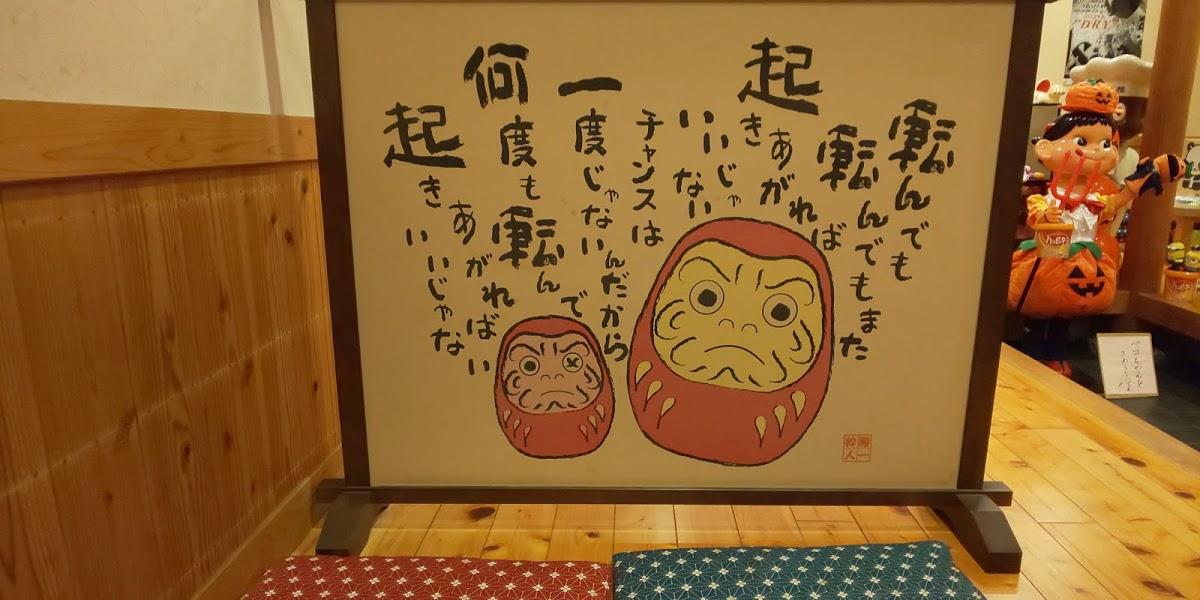 転んでも
転んでもまた
起きあがれば
いいじゃない
チャンスは
一度じゃないんだから
何度も転んで
起きあがれば
いいじゃない
DRY